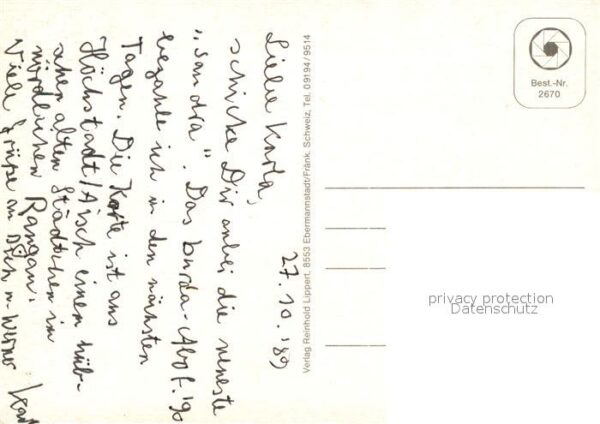 27. 10. '89
Liebe Karla,
schicke Dir anbei die neueste
"sandra". Das burda-Abo f. '90
bezahle ich in den nächsten
Tagen. Die Karte ist aus
Höchstadt/Aisch einem hüb-
schen alten Städtchen im
nördlichen
Viele Grüße an Dich u. Werner
Verlag Reinhold Lippert, 8553 Ebermannstadt/Fränk. Schweiz, Tel. 09194/9514
Best.-Nr.
2670
privacy protection
Datenschutz